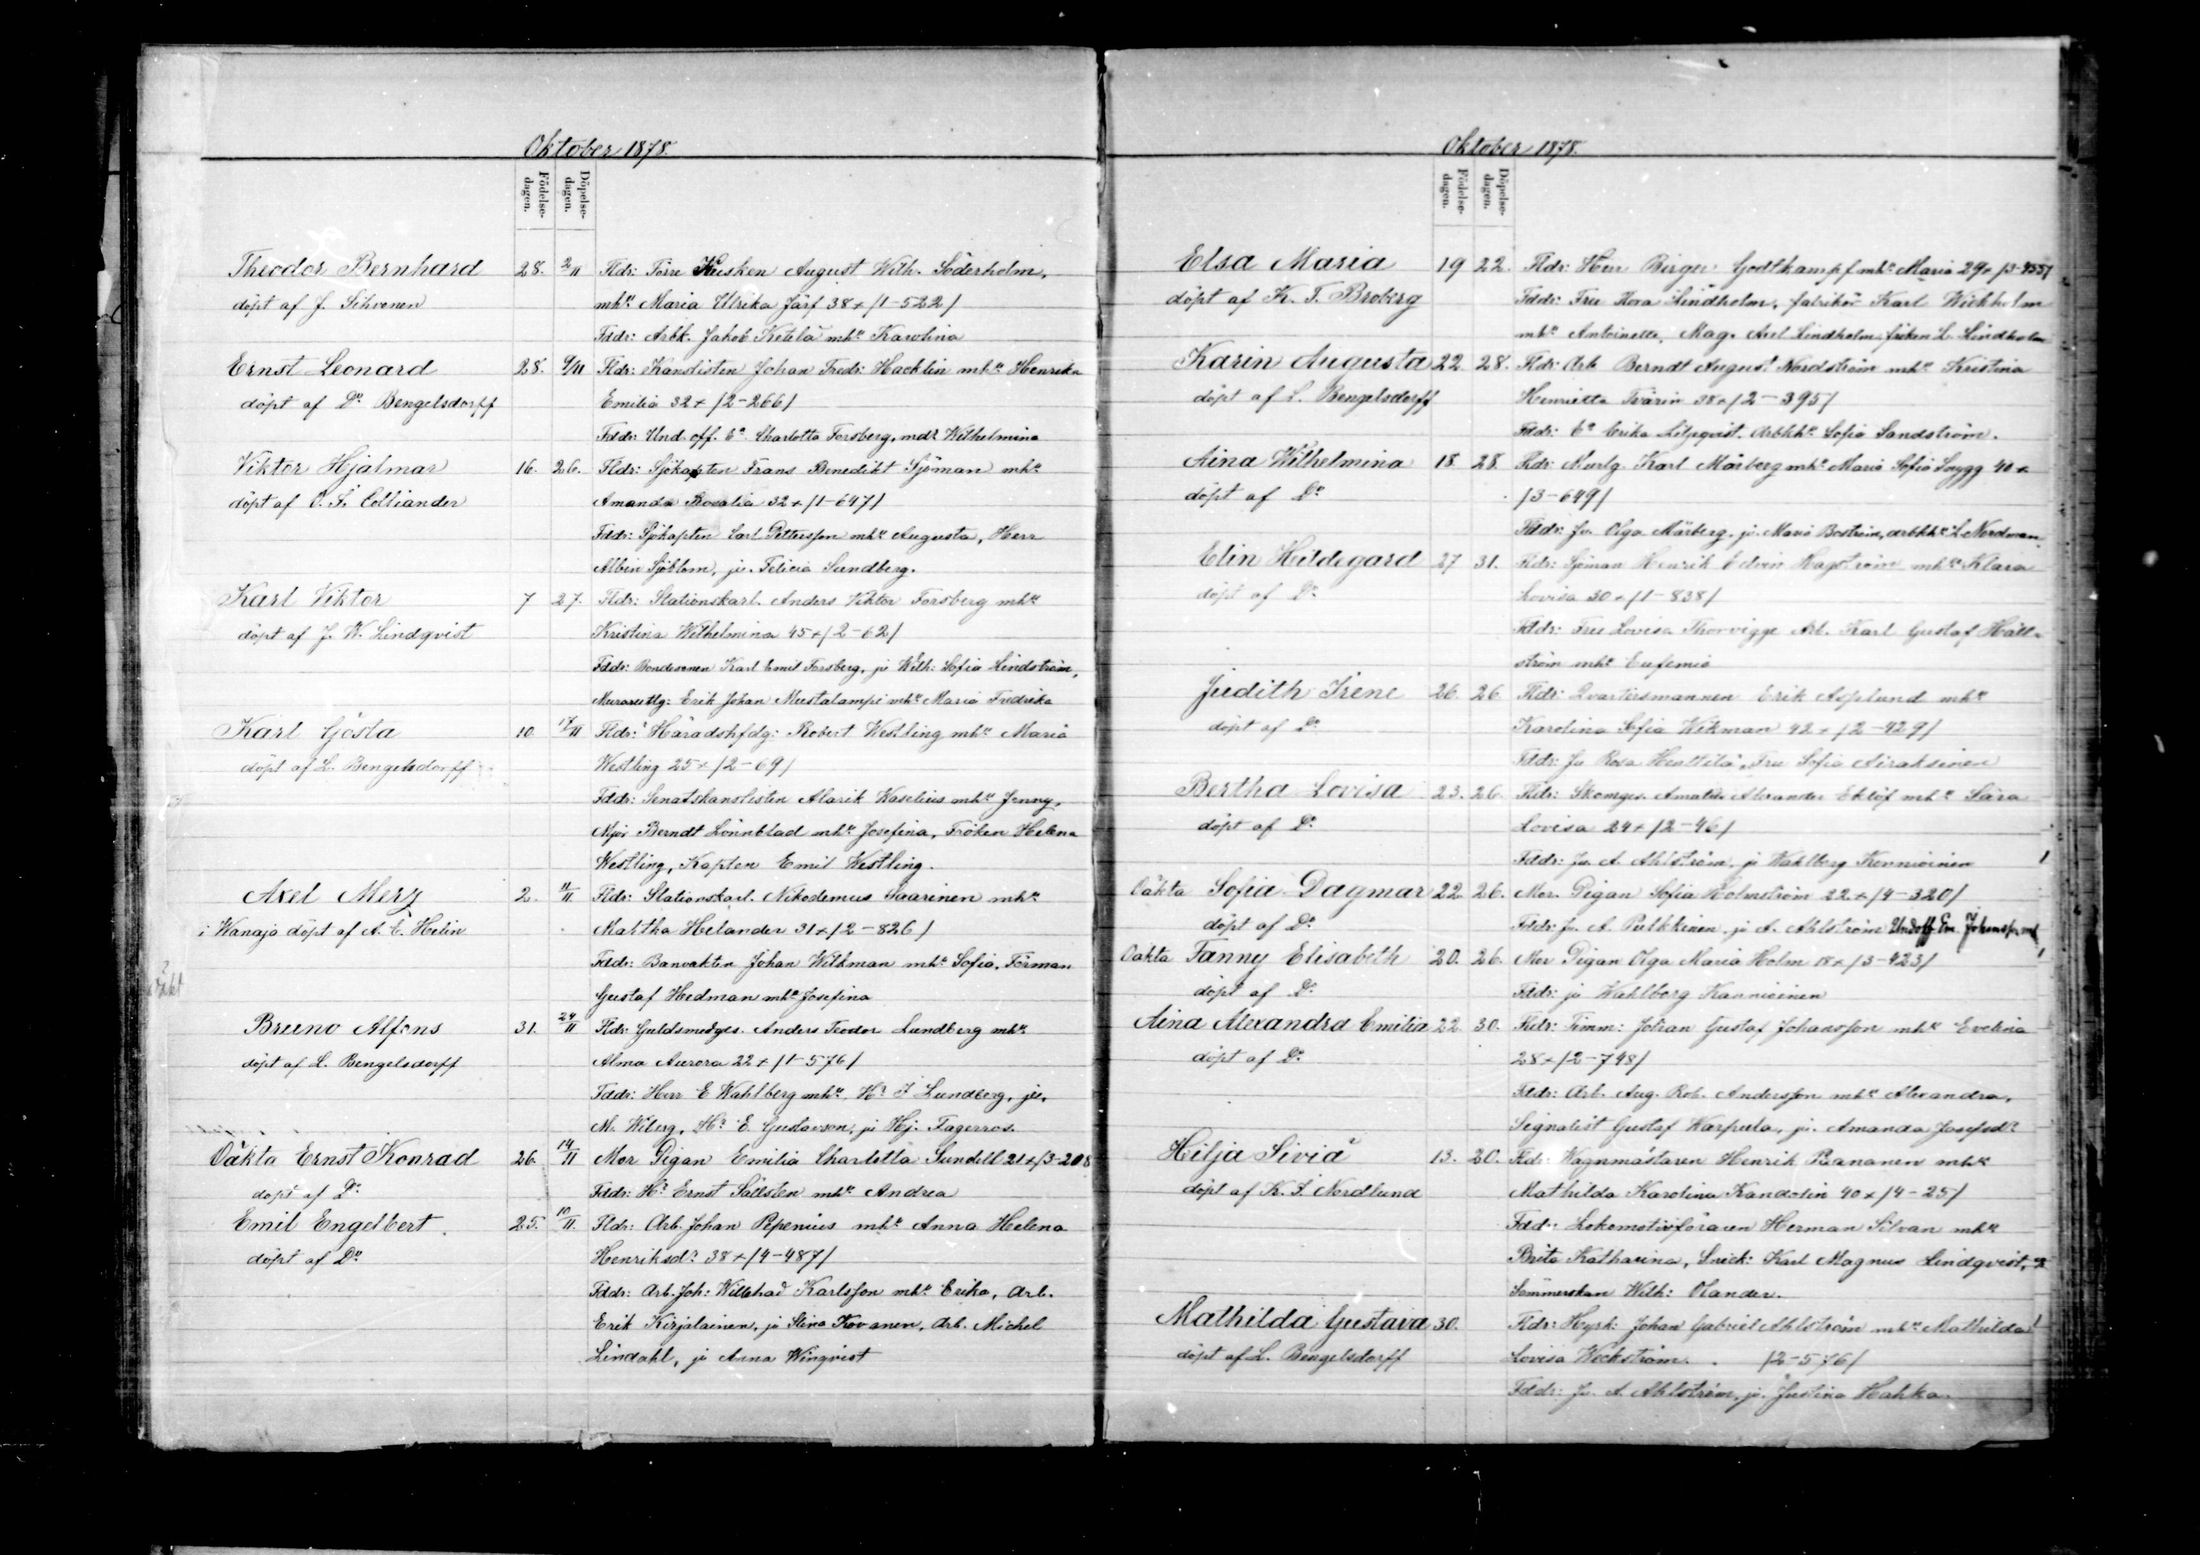 Oktober 1878.
Födelse-dagen. Döpelse-dagen.
Theodor Bernhard 28. 2/11 Fldr: Förre Kusken August Wilh. Söderholm,
döpt af J. Sihvonen mh:u Maria Ulrika Järf 38 + /1-522/
Fddr: Arbk. Jakob Ketela mh:u Karolina
Ernst Leonard 28. 9/11 Fldr: Kanslisten Johan Fredr: Hacklin mh:u Henrika
döpt af D:o Bengelsdorff Emilia 32 + /2-266/
Fddr: Und. off. E:a Charlotta Forsberg, md:r Wilhelmina
Viktor Hjalmar 16. 26. Fldr: Sjökapten Frans Benedikt Sjöman mh:u
döpt af O. I. Colliander Amanda Rosalia 32 + /1-647/
Fddr: Sjökapten Carl Pettersson mh:u Augusta, Herr
Albin Sjöblom, jo. Felicia Sundberg.
Karl Viktor 7 27. Fldr: Stationskarl. Anders Viktor Forsberg mh:u
döpt af J. W. Lindqvist Kristina Wilhelmina 45 + /2-62/
Fddr: Bondesonen Karl Emil Forsberg, jo Wilh: Sofia Lindström,
Erik Johan Mustalampi mh:u Maria Fredrika
Karl Gösta 10 17/11 Fldr: Häradshfdg: Robert Westling mh:u Maria
döpt af L. Bengelsdorff Westling 25 + /2-69/
Fddr: Senatskanslisten Alarik Waselius mh:u Jenny,
Berndt Lönnblad mh:u Josefina, Fröken Helena
Westling, Kapten Emil Westling.
Axel Merz 2. 11/11 Fldr: Stationskarl. Nikodemus Saarinen mh:u
i Wanaja döpt af A. E. Helin Martha Helander 31 + /2-826/
Fddr: Banvakten Johan Wilkman mh:u Sofia, Förman
Gustaf Hedman mh:u Josefina
Bruno Alfons 31. 24/11 Fldr: Guldsmedges. Anders Teodor Lundberg mh:u
döpt af L. Bengelsdorff Alma Aurora 22 + /1-576/
Fddr: Herr E Wahlberg mh:u, H:r I Lundberg, jo.
M. Wiberg, H:r E. Gustavson, jo Hj. Fagerros.
Oäkta Ernst Konrad 26. 14/11 Mor Pigan Emilia Charlotta Sundell 21 + /3-208
döpt af D:o Fddr: H:r Ernst Sällsten mh:u Andrea
Emil Engelbert. 25. 10/11. Fldr: Arb. Johan Pepenius mh:u Anna Helena
döpt af D:o Henriksd:r 38 + /4-487/
Fddr: Arb. Joh: Willehad Karlsson mh:u Erika, Arb.
Erik Kirjalainen, jo Stina Kovanen, Arb. Michel
Lindahl, jo Anna Winqvist
Oktober 1878.
Födelse-dagen. Döpelse-dagen.
Elsa Maria 19 22. Fldr: Herr Birger Godtkampf mh:u Maria 29 + /3-455/
döpt af K. T. Broberg Fddr: Fru Rosa Lindholm, fabrikör Karl Wickholm
mh:u Antoinette, Mag. Axel Lindholm, fröken L. Lindholm
Karin Augusta 22. 28. Fldr: Arb. Berndt August Nordström mh:u Kristina
döpt af L. Bengelsdorff Henrietta Tvärin 38 + /2-395/
Fddr: E:a Erika Liljeqvist. Arbkh:u Sofia Sandström.
Aina Wilhelmina 18. 28. Fldr: Murlg. Karl Mårberg mh:u Maria Sofia Snygg 40 +
döpt af D:o /3-649/
Fddr: Jo. Olga Mårberg, jo. Maria Boström, arbkh:u L. Nordman
Elin Hildegard 27 31. Fldr: Sjöman Henrik Edvin Hagström mh:u Klara
döpt af D:o Lovisa 30 + /1-838/
Fddr: Fru Lovisa Thorvigge Arb. Karl Gustaf Häll-
ström mh:u Eufemia
Judith Irene 26. 26. Fldr: Qvartersmannen Erik Asplund mh:u
döpt af D:o Karolina Sofia Wikman 42 + /2-429/
Fddr: Jo Rosa Henttilä, Fru Sofia Airaksinen
Bertha Lovisa 23. 26. Fldr: Skomges. Alexander Eklöf mh:u Sara
döpt af D:o Lovisa 24 + /2-46/
Fddr: Jo. A. Ahlström, jo Wahlborg Konnioinen
Oäkta Sofia Dagmar 22. 26. Mor. Pigan Sofia Holmström 22 + /4-320/
döpt af D:o Fddr: Jo. A. Pulkkinen, jo A. Ahlström Undoff. Em. Johansson mh
Oäkta Fanny Elisabeth 20. 26. Mor Pigan Olga Maria Holm 18 + /3-423/
döpt af D:o Fddr: jo Wahlborg Kannioinen
Aina Alexandra Emilia 22. 30. Fldr: Timm: Johan Gustaf Johansson mh:u Evelina
döpt af D:o 28 + /2-748/
Fddr: Arb. Aug. Rob. Andersson mh:u Alexandra,
Signalist Gustaf Warpula, jo. Amanda Josefsd:r
Hilja Siviä 13. 20. Fldr: Wagnmästaren Henrik Paananen mh:u
döpt af K. I. Nordlund Mathilda Karolina Kandolin 40 + /4-25/
Fddr: Lokomotivföraren Herman Silvan mh:u
Brita Katharina, Snick: Karl Magnus Lindqvist,
Sömmerskan Wilh: Olander.
Mathilda Gustava 30. Fldr: Hyrk: Johan Gabriel Ahlström mh:u Mathilda
döpt af L. Bengelsdorff Lovisa Weckström. /2-576/
Fddr: Jo. A. Ahlström, jo. Justina Hahka.